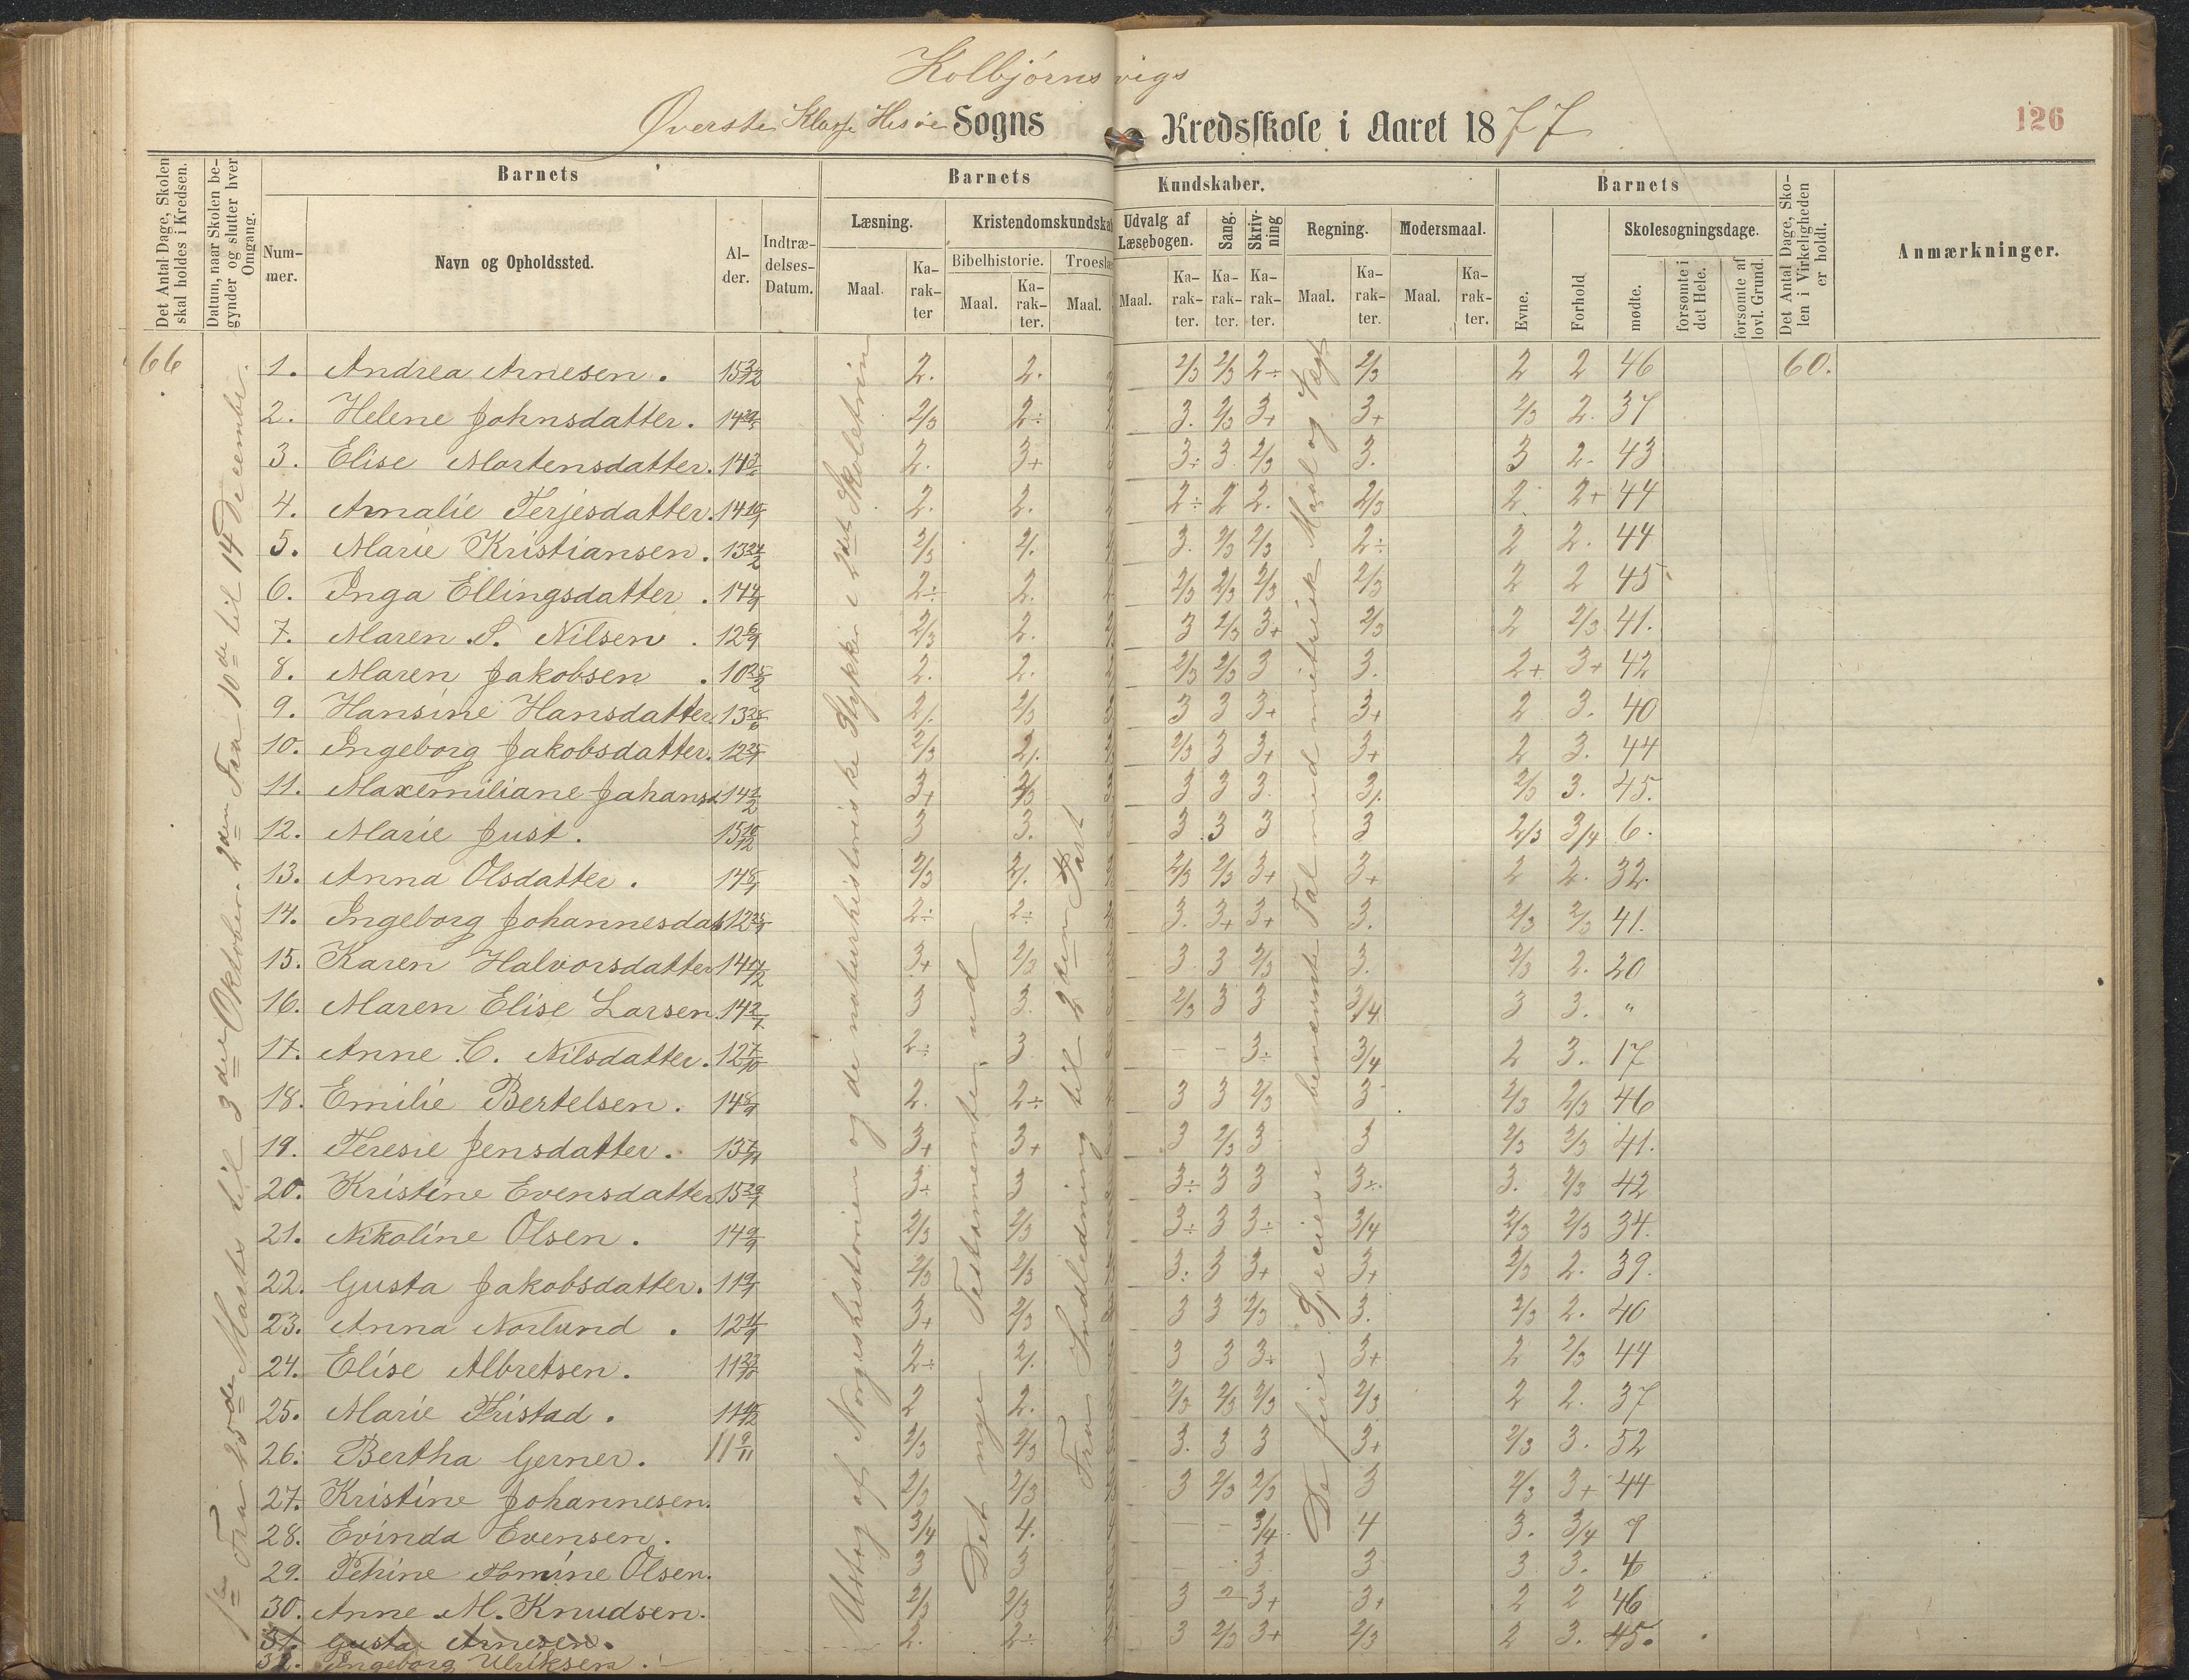 Kolbjörnsvigs
Øverste Klasse Hisøe Sogns Kredsskole i Aaret 1877
126
Det Antal Dage, Skolen skal holdes i Kredsen.
Datum, naar Skolen begynder og slutter hver Omgang.
Barnets
Nummer.
Navn og Opholdssted.
Alder.
Indtrædelses-Datum.
Barnets Kundskaber.
Læsning.
Maal.
Karakter
Kristendomskundskab
Bibelhistorie.
Maal.
Karakter.
Troeslæ
Maal.
Udvalg af Læsebogen.
Maal.
Karakter.
Sang.
Karakter.
Skrivning
Karakter.
Regning.
Maal.
Karakter.
Modersmaal.
Maal.
Karakter.
Barnets
Evne.
Forhold
Skolesøgningsdage.
mødte.
forsømte i det Hele.
forsømte af lovl. Grund.
Det Antal Dage, Skolen i Virkeligheden er holdt.
Anmærkninger.
66
1ste Fra 25de Marts til 3die Oktober. 2den Fra 10de til 14 December.
Udtog af Norgeshistorien og de naturhistoriske Stykker i 2det Skoletrin
Det nye Testamente, ud
Fra Indledning til 2den Part
De fire Speciese i benævnte Tal med metrisk Maal og Vægt
1. Andrea Arnesen. 15 3/12 2. 2. 2/3 2/3 2÷ 2/3 2 2 46 60.
2. Helene Johnsdatter. 14 2/3 2÷ 3. 2/3 3+ 3+ 2/3 2. 37
3. Elise Mortensdatter. 14 2. 3+ 3÷ 3 2/3 3. 3 2. 43
4. Amalie Terjesdatter. 14 2. 2. 2÷ 2 2. 2/3 2 2+ 44
5. Marie Kristiansen. 13 24/2 2/3 2/. 3. 2/3 2/3 2÷ 2 2. 44
6. Inga Ellingsdatter. 14 2÷ 2. 2/3 2/3 2/3 2/3 2 2 45
7. Maren S. Nilsen. 12 6/9 2/3 2. 3 2/3 3+ 2/3 2 2/3 41.
8. Maren Jakobsen. 10 25/2 2. 2. 2/3 2/3 3 3. 2+ 3+ 42
9. Hansine Hansdatter. 13 2/. 2/3 3 3 3+ 3+ 2 3. 40
10. Ingeborg Jakobsdatter. 12 2/3 2/. 2/3 3 3+ 3+ 2 3. 44
11. Maxemiliane Johans 14 1/2 3+ 2/3 3 3 3. 3/. 2/3 3. 45.
12. Marie Just. 15 10/12 3 3. 3 3 3 3 2/3 3/4 6.
13. Anna Olsdatter. 14 2/3 2/. 2/3 2/3 3+ 3+ 2 2. 32.
14. Ingeborg Johannesdat 12 2÷ 2÷ 3. 3+ 3+ 3. 2/3 2/3 41.
15. Karen Halvorsdatter 14 17/12 3+ 2/3 3 3 2/3 3. 2/3 2. 20
16. Maren Elise Larsen. 14 2/7 3 3. 2/3 3 3 3/4 3 3. "
17. Anne C. Nilsdatter. 12 7/10 2÷ 3 – – 3÷ 3/4 2 3. 17
18. Emilie Bertelsen. 14 2. 2÷ 3 3 2/3 3 2/3 2/3 46
19. Teresie Jensdatter. 13 7/11 3+ 3+ 3 2/3 3 3 2/3 2/3 41.
20. Kristine Evensdatter 15 3÷ 3 3÷ 3 3 3÷ 3. 2/3 42
21. Nikoline Olsen. 14 9/9 2/3 2/3 3÷ 3 3÷ 3/4 2/3 2/3 34.
22. Gusta Jakobsdatter. 11 2/3 2/3 3÷ 3 3+ 3+ 2/3 2. 39.
23. Anna Norlund. 12 3+ 2/3 3 3 2/3 3. 2/3 2. 40
24. Elise Albretsen. 11 2÷ 2/. 3 3 3÷ 3+ 2 2/3 44
25. Marie Tristad. 11 2 2. 2/3 2/3 2/3 2/3 2 2. 37
26. Bertha Gerner. 11 9/11 2/3 2/3 3. 3 3 3+ 2/3 3. 52
27. Kristine Johannesen. 2/3 2/3 3 2/3 2/3 3 2/3 3+ 44
28. Evinda Evensen. 3/4 4. – – 3/4 4 3. 3/4 9
29. Tehine Tomine Olsen. 3 3 – 3 3 3 3. 4
30. Anne M. Knudsen. 2/3 2/3 3 2 3+ 3+ 2 2 46
31. Gusta Arnesen. 2. 2÷ 3 2/3 3+ 2/3 2 3. 45.
32. Ingeborg Ulriksen.